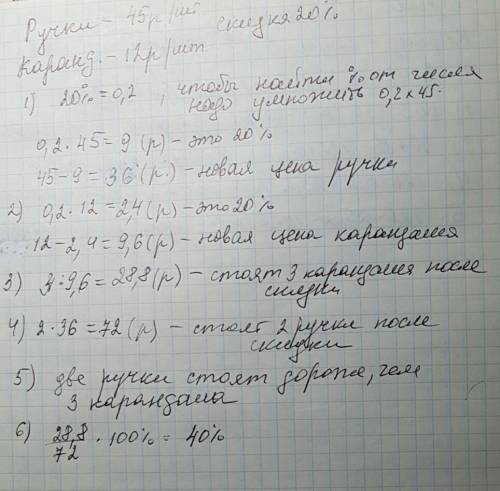 Ручки – 45р/шт скидка 20%
Каранд. – 12р/шт
1) 20% = 0,2 , чтобы найти % от числа
надо умножить 0,2×45.
0,2 · 45 = 9 (р) – это 20%
45 – 9 = 36 (р.) – новая цена ручки
2) 0,2 · 12 = 2,4 (р) – это 20%
12 – 2,4 = 9,6 (р) – новая цена карандаша
3) 3 · 9,6 = 28,8 (р) – стоят 3 карандаша после
скидки
4) 2 · 36 = 72 (р) – стоят 2 ручки после
скидки
5) две ручки стоят дороже, чем
3 карандаша
6) 28,8/72 · 100% = 40%